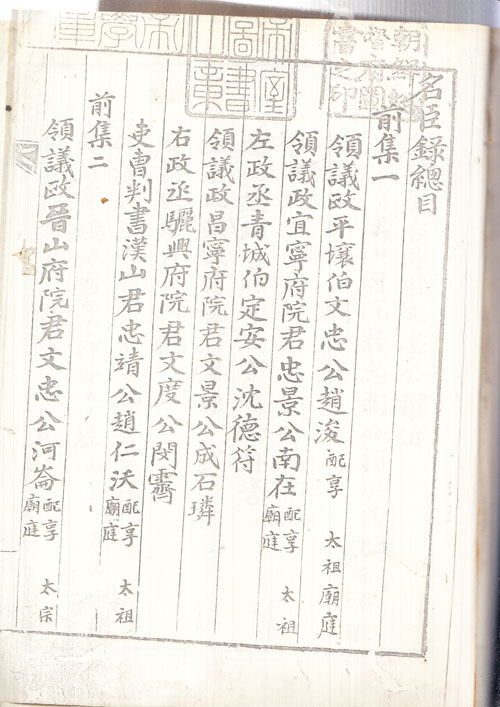 帝室圖書之章
名臣錄總目
前集一
領議政平壤伯文忠公趙浚 配享 太祖廟庭
領議政宜寧府院君忠景公南在 配享 太祖廟庭
左政丞青城伯定安公沈德符
領議政昌寧府院君文景公成石璘
右政丞驪興府院君文度公閔霽
吏曹判書漢山君忠靖公趙仁沃 配享 太祖廟庭
前集二
領議政晉山府院君文忠公河崙 配享 太宗廟庭